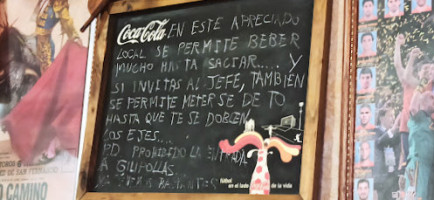 Coca-Cola EN ESTE APRECIADO
LOCAL SE PERMITE BEBER
MUCHO HASTA SACIAR..... Y
SI INVITAS AL JEFE, TAMBIÉN
SE PERMITE METERSE DE TO
HASTA QUE TE SE DOBLEN
LOS EJES....
PD. PROHIBIDO LA ENTRADA
A GILIPOLLAS.
fútbol
en el lado de la vida
CAMINO